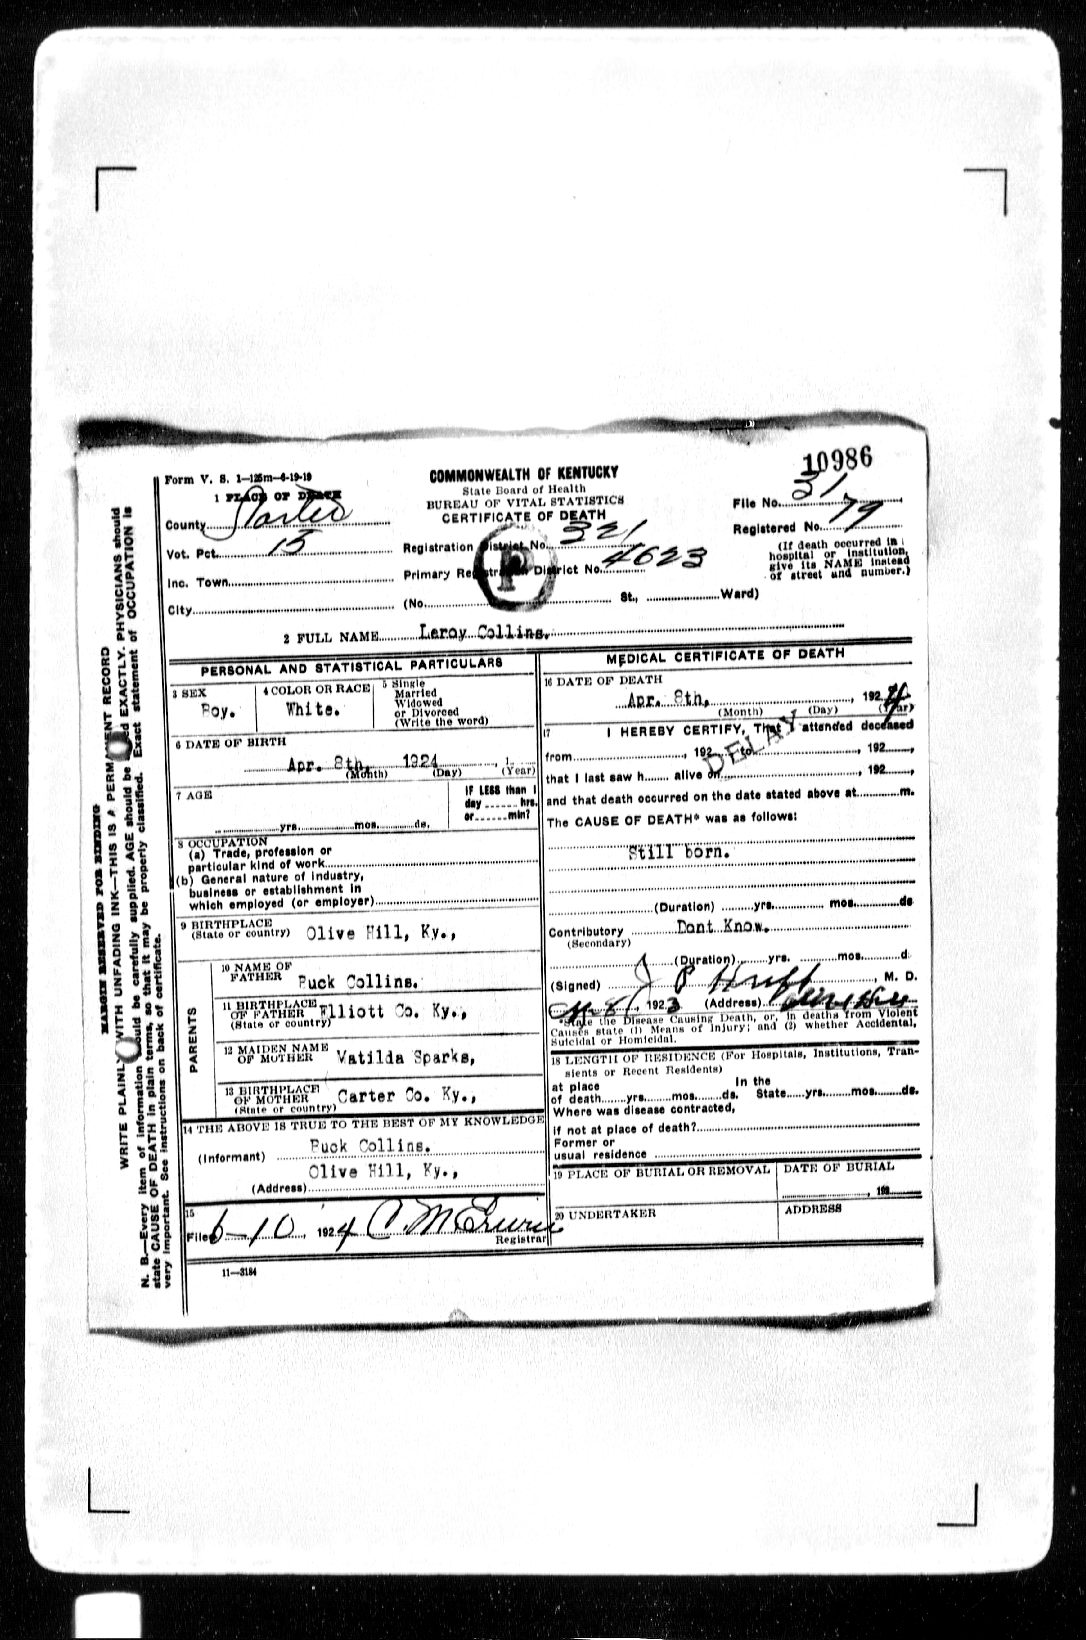 10986
Form V. S. 1—125m—4-19-19
COMMONWEALTH OF KENTUCKY
State Board of Health
BUREAU OF VITAL STATISTICS
CERTIFICATE OF DEATH
1 PLACE OF DEATH
File No. 31
County Carter
Registered No. 79
Vot. Pct. 15
Registration District No. 321
(If death occurred in
hospital or institution,
give its NAME instead
of street and number.)
Inc. Town
Primary Registration District No. 4623
P
City
(No. St., Ward)
2 FULL NAME Leroy Collins.
PERSONAL AND STATISTICAL PARTICULARS
3 SEX
Boy.
4 COLOR OR RACE
White.
5 Single
Married
Widowed
or Divorced
(Write the word)
6 DATE OF BIRTH
Apr. 8th, 1924 , 1
(Month) (Day) (Year)
7 AGE
yrs. mos. ds.
IF LESS than 1
day hrs.
or min?
8 OCCUPATION
(a) Trade, profession or
particular kind of work
(b) General nature of industry,
business or establishment in
which employed (or employer)
9 BIRTHPLACE
(State or country) Olive Hill, Ky.,
PARENTS
10 NAME OF
FATHER Buck Collins.
11 BIRTHPLACE
OF FATHER Elliott Co. Ky.,
(State or country)
12 MAIDEN NAME
OF MOTHER Matilda Sparks,
13 BIRTHPLACE
OF MOTHER Carter Co. Ky.,
(State or country)
14 THE ABOVE IS TRUE TO THE BEST OF MY KNOWLEDGE
(Informant) Buck Collins.
Olive Hill, Ky.,
(Address)
15
Filed 6-10 1924
Registrar
11—3184
MEDICAL CERTIFICATE OF DEATH
16 DATE OF DEATH
Apr. 8th, , 1924
(Month) (Day) (Year)
17 I HEREBY CERTIFY, That attended deceased
DELAY
from , 192 to , 192 ,
that I last saw h alive on , 192 ,
and that death occurred on the date stated above at m.
The CAUSE OF DEATH* was as follows:
Still born.
(Duration) yrs. mos. ds
Contributory Dont Know.
(Secondary)
(Duration) yrs. mos. d
(Signed) J P Huff , M. D.
1923 (Address) Olive Hill
*State the Disease Causing Death, or, in deaths from Violent
Causes state (1) Means of Injury; and (2) whether Accidental,
Suicidal or Homicidal.
18 LENGTH OF RESIDENCE (For Hospitals, Institutions, Tran-
sients or Recent Residents)
at place In the
of death yrs. mos. ds. State yrs. mos. ds.
Where was disease contracted,
if not at place of death?
Former or
usual residence
19 PLACE OF BURIAL OR REMOVAL
DATE OF BURIAL
, 192
20 UNDERTAKER
ADDRESS
MARGIN RESERVED FOR BINDING
WRITE PLAINLY WITH UNFADING INK—THIS IS A PERMANENT RECORD
N. B.—Every item of information should be carefully supplied. AGE should be stated EXACTLY. PHYSICIANS should
state CAUSE OF DEATH in plain terms, so that it may be properly classified. Exact statement of OCCUPATION is
very important. See instructions on back of certificate.